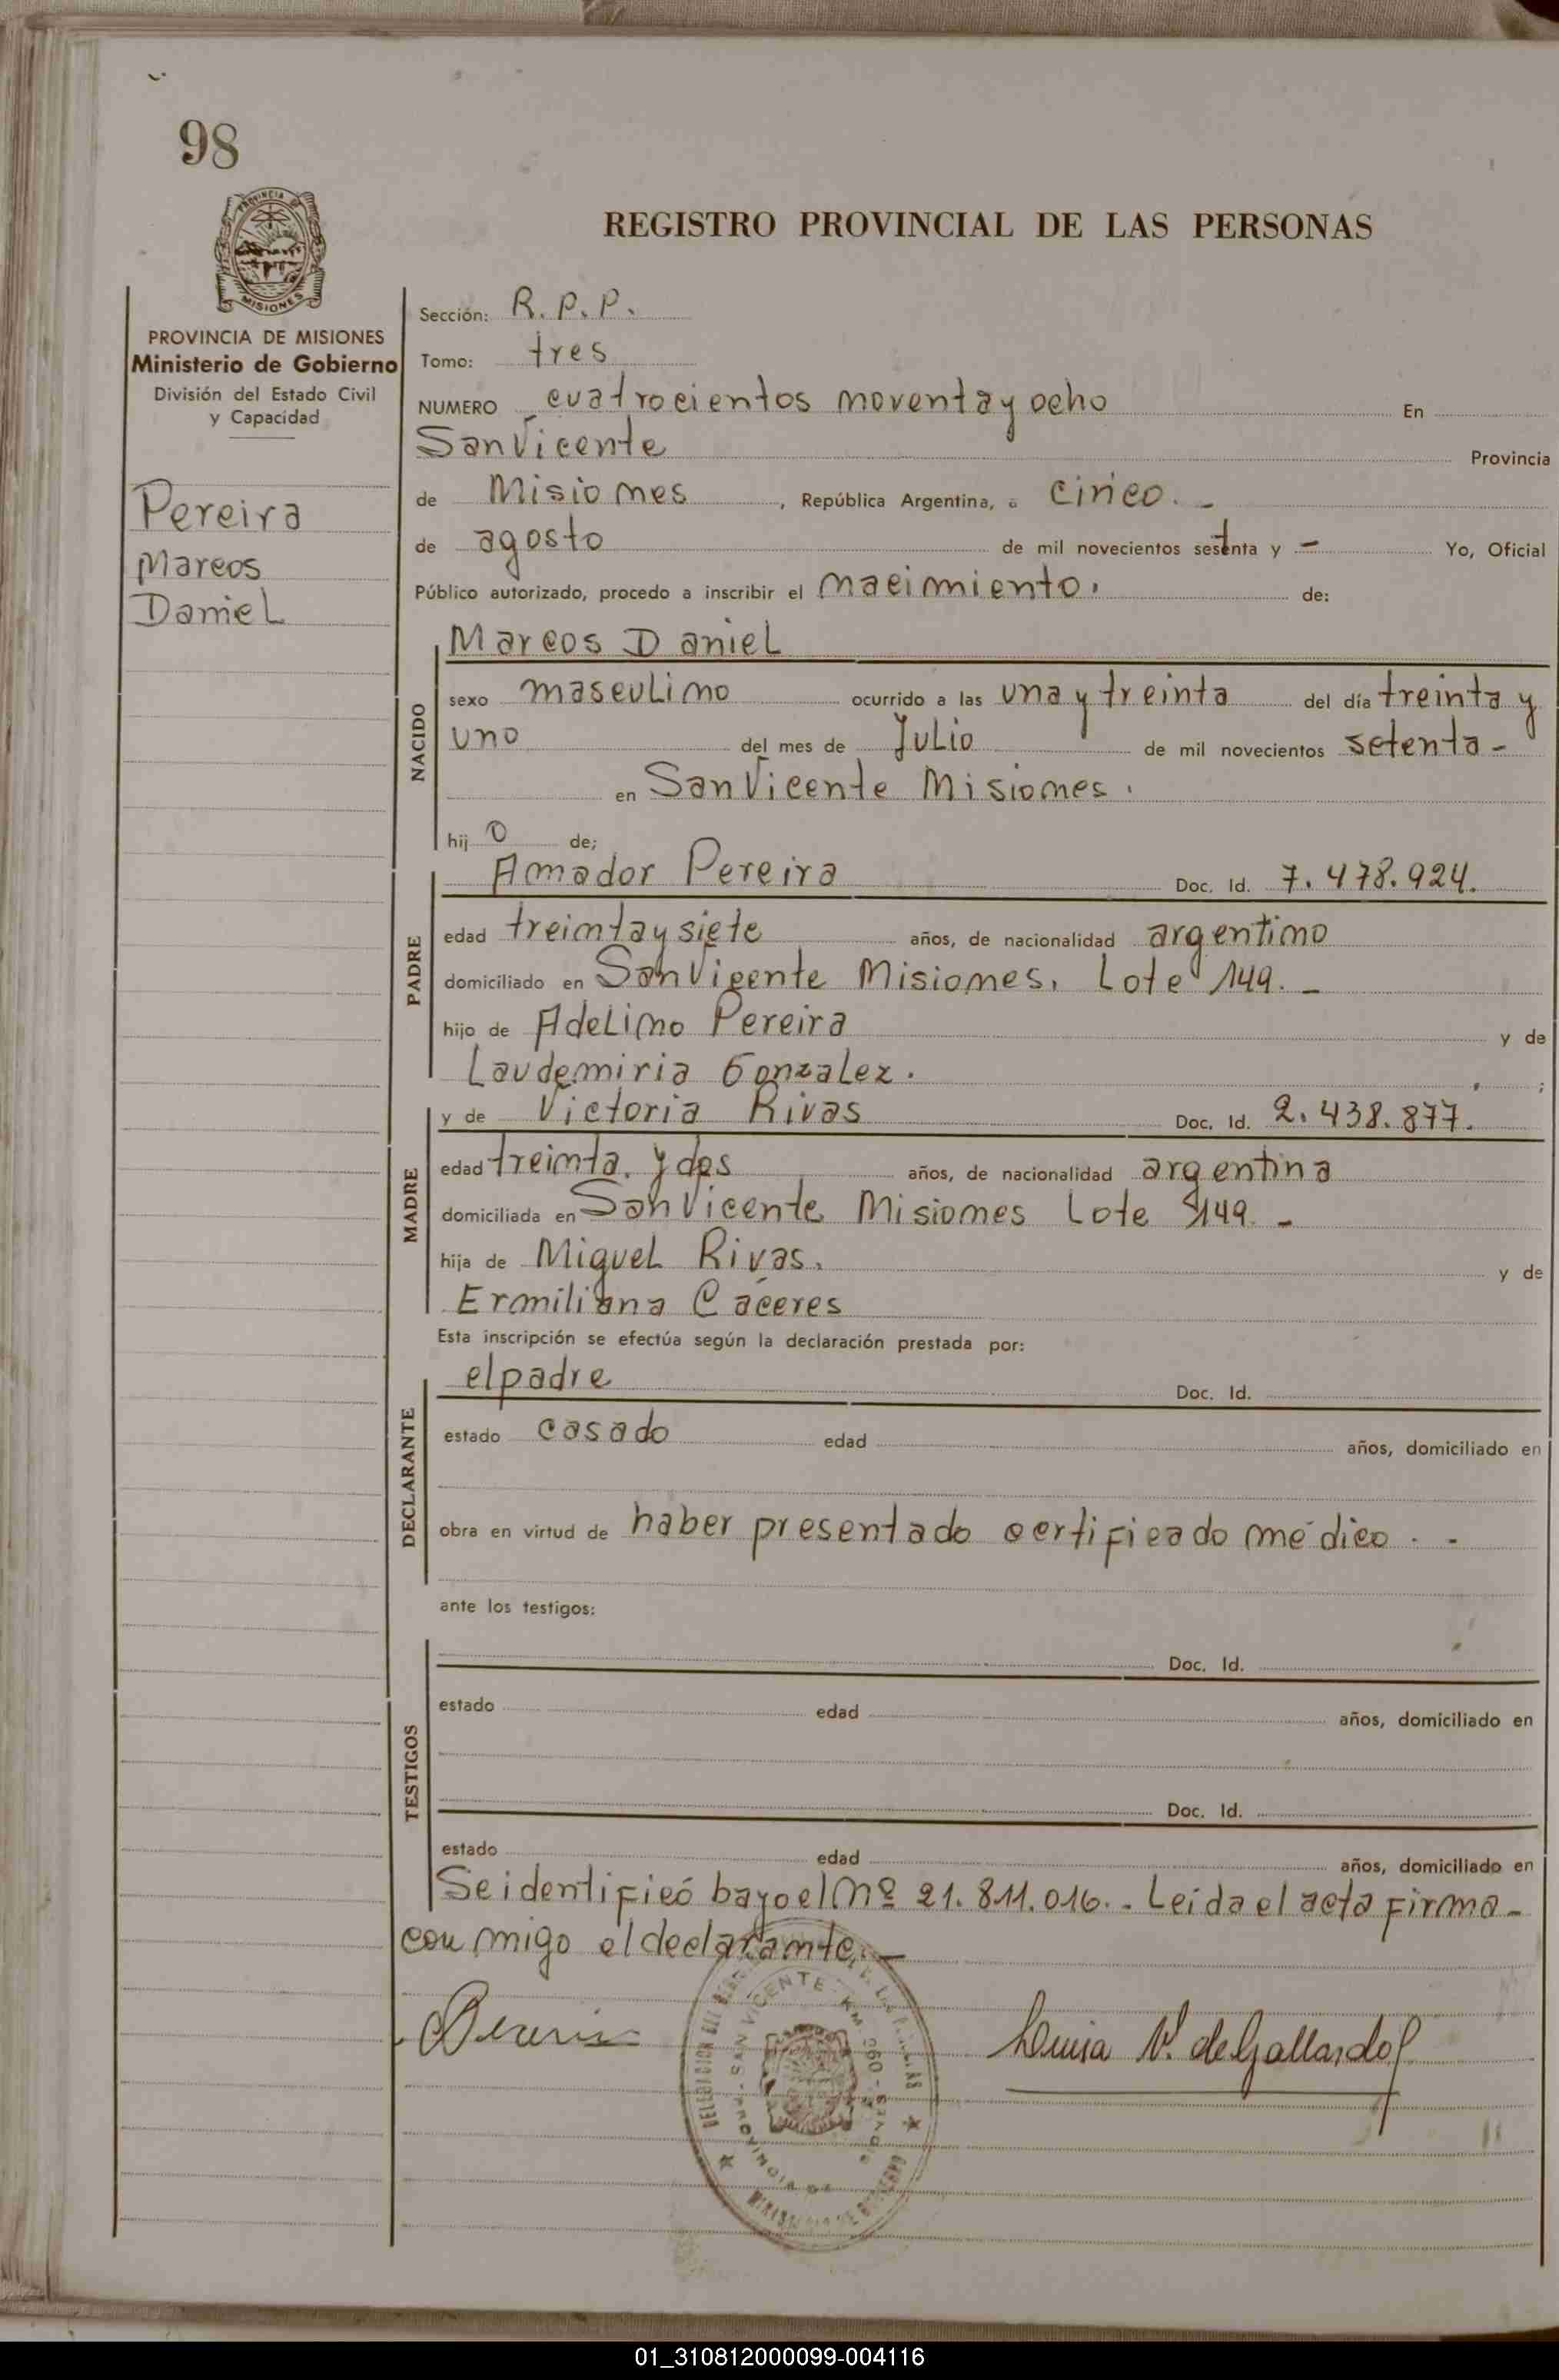 98
PROVINCIA DE MISIONES
Ministerio de Gobierno
División del Estado Civil
y Capacidad
Pereira
Marcos
Daniel
REGISTRO PROVINCIAL DE LAS PERSONAS
Sección: R. P. P.
Tomo: tres
NUMERO cuatrocientos noventa y ocho En
San Vicente Provincia
de Misiones, República Argentina, a cinco. -
de agosto de mil novecientos setenta y - Yo, Oficial
Público autorizado, procedo a inscribir el nacimiento. de:
NACIDO
Marcos Daniel
sexo masculino ocurrido a las una y treinta del día treinta y
uno del mes de Julio de mil novecientos setenta -
en San Vicente Misiones.
hijo de;
PADRE
Amador Pereira Doc. Id. 7.478.924.
edad treinta y siete años, de nacionalidad argentino
domiciliado en San Vicente Misiones. Lote 149. -
hijo de Adelino Pereira y de
Laudemiria Gonzalez. ;
MADRE
y de Victoria Rivas Doc. Id. 2.438.877.
edad treinta y dos años, de nacionalidad argentina
domiciliada en San Vicente Misiones Lote 149 -
hija de Miguel Rivas. y de
Ermiliana Cáceres
Esta inscripción se efectúa según la declaración prestada por:
DECLARANTE
el padre Doc. Id.
estado casado edad años, domiciliado en
obra en virtud de haber presentado certificado médico. -
ante los testigos:
TESTIGOS
Doc. Id.
estado edad años, domiciliado en
Doc. Id.
estado edad años, domiciliado en
Se identificó bayo el Nº 21.811.016.- Leida el acta firma-
con migo el declarante. -
Luisa V. de Gallardo
01_310812000099-004116